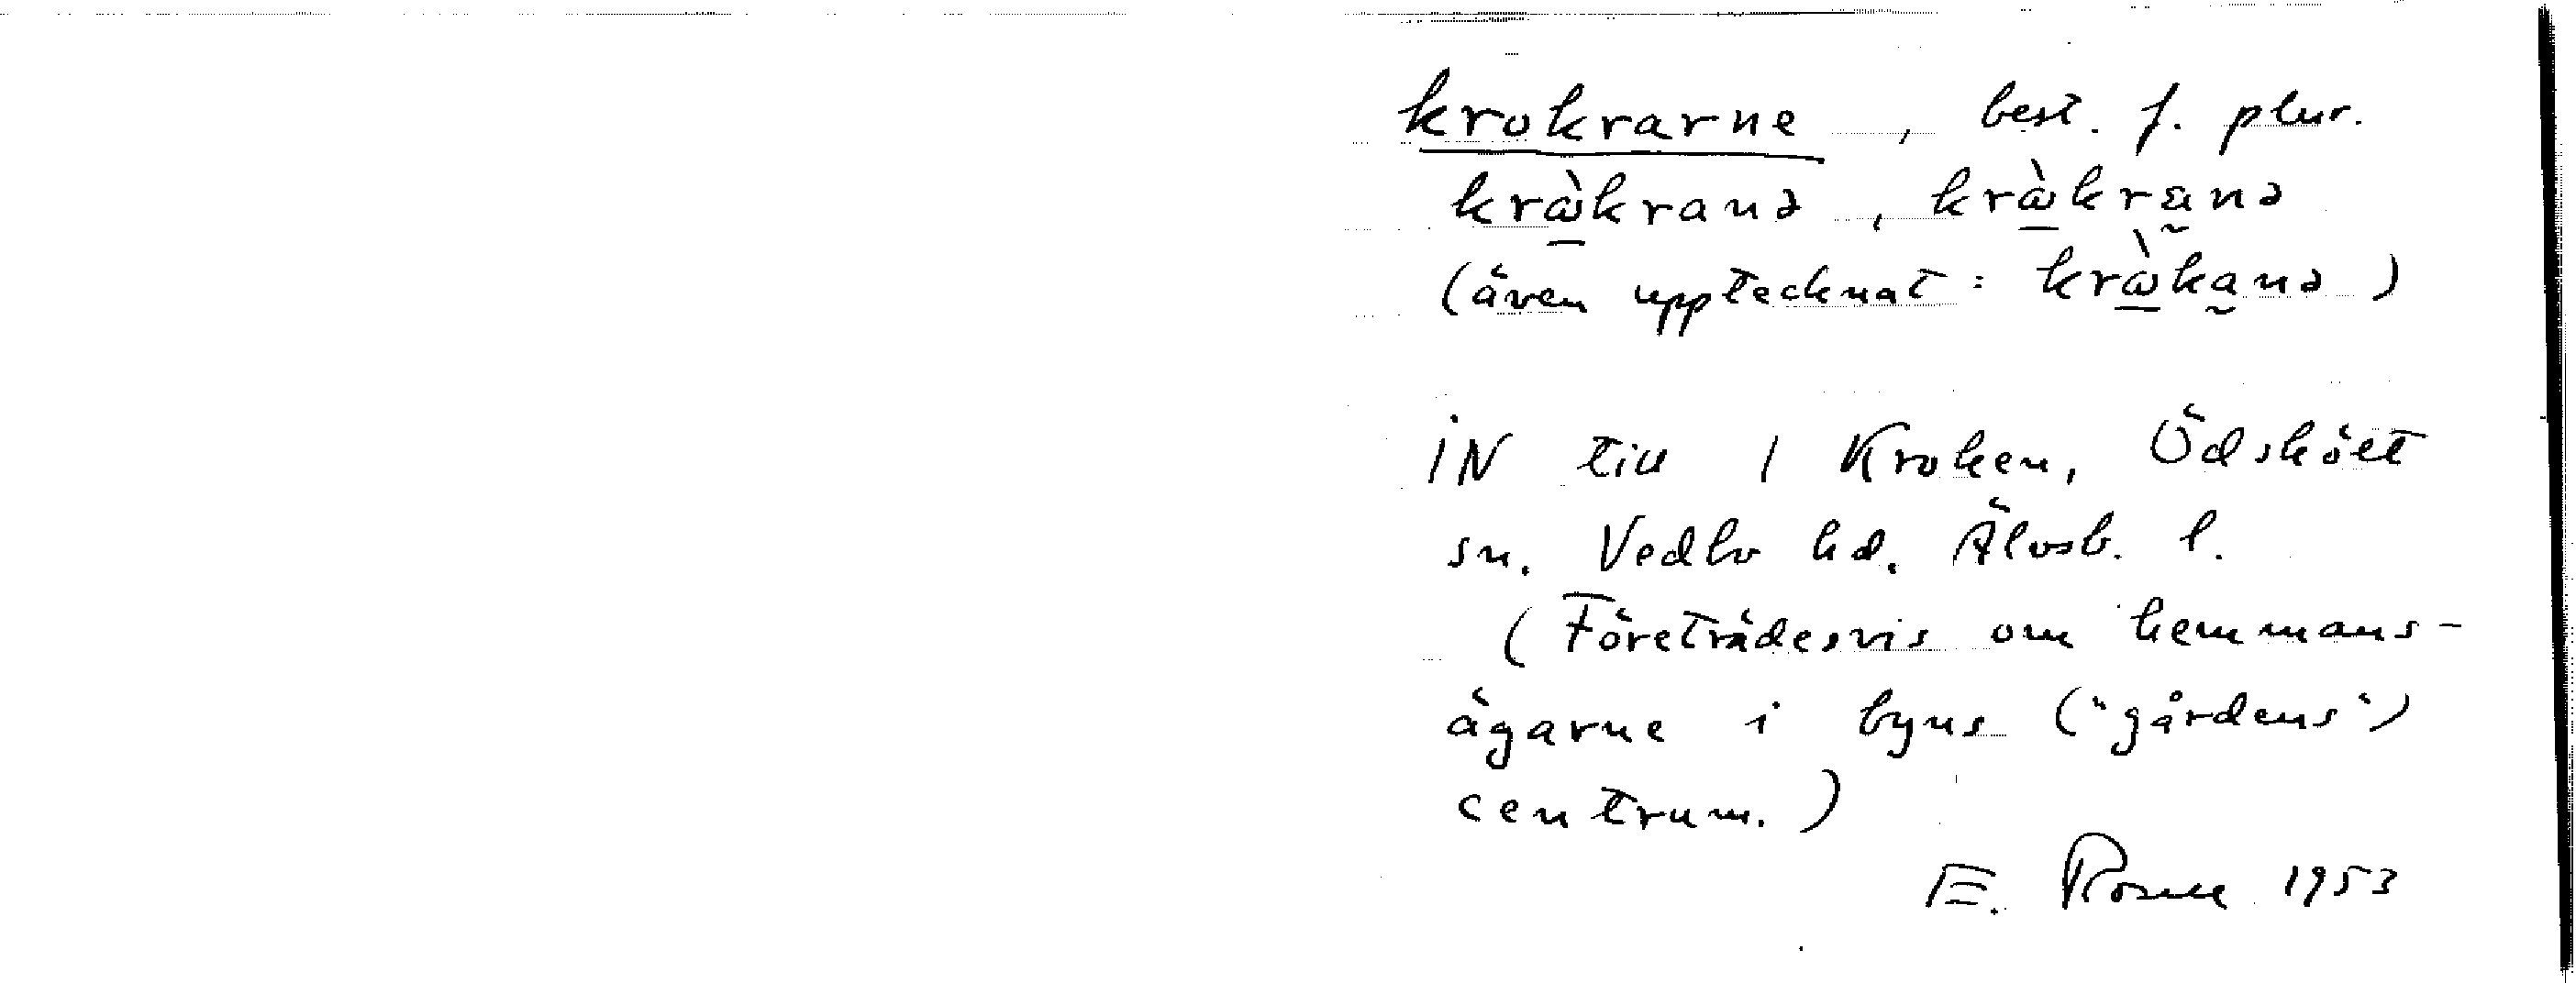 krokrarne, best. f. plur.
krὼ̲kranə, krὼ̲kra̰nə
(även upptecknat: krὼ̲ka̰nə)
IN till 1 Kroken, Ödskölt
sn. Vedbo hd. Älvsb. l.
(Företrädesvis om hemmans-
ägarne i byns ("gårdens")
centrum.)
E. Rosell 1953